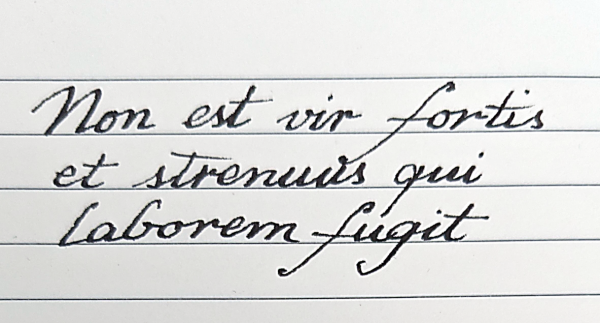 Non est vir fortis
et strenuus qui
laborem fugit